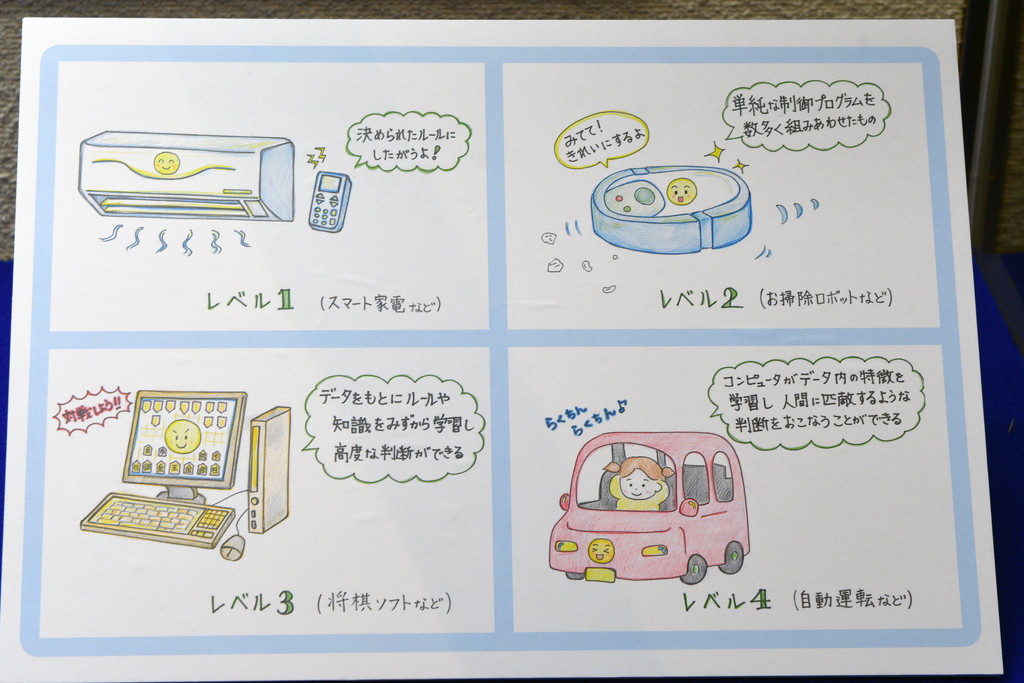 決められたルールに
したがうよ!
レベル1 (スマート家電など)
単純な制御プログラムを
数多く組みあわせたもの
みてて!
きれいにするよ
レベル2 (お掃除ロボットなど)
対戦しよう!!
データをもとにルールや
知識をみずから学習し
高度な判断ができる
レベル3 (将棋ソフトなど)
コンピュータがデータ内の特徴を
学習し人間に匹敵するような
判断をおこなうことができる
らくちん
らくちん♪
レベル4 (自動運転など)